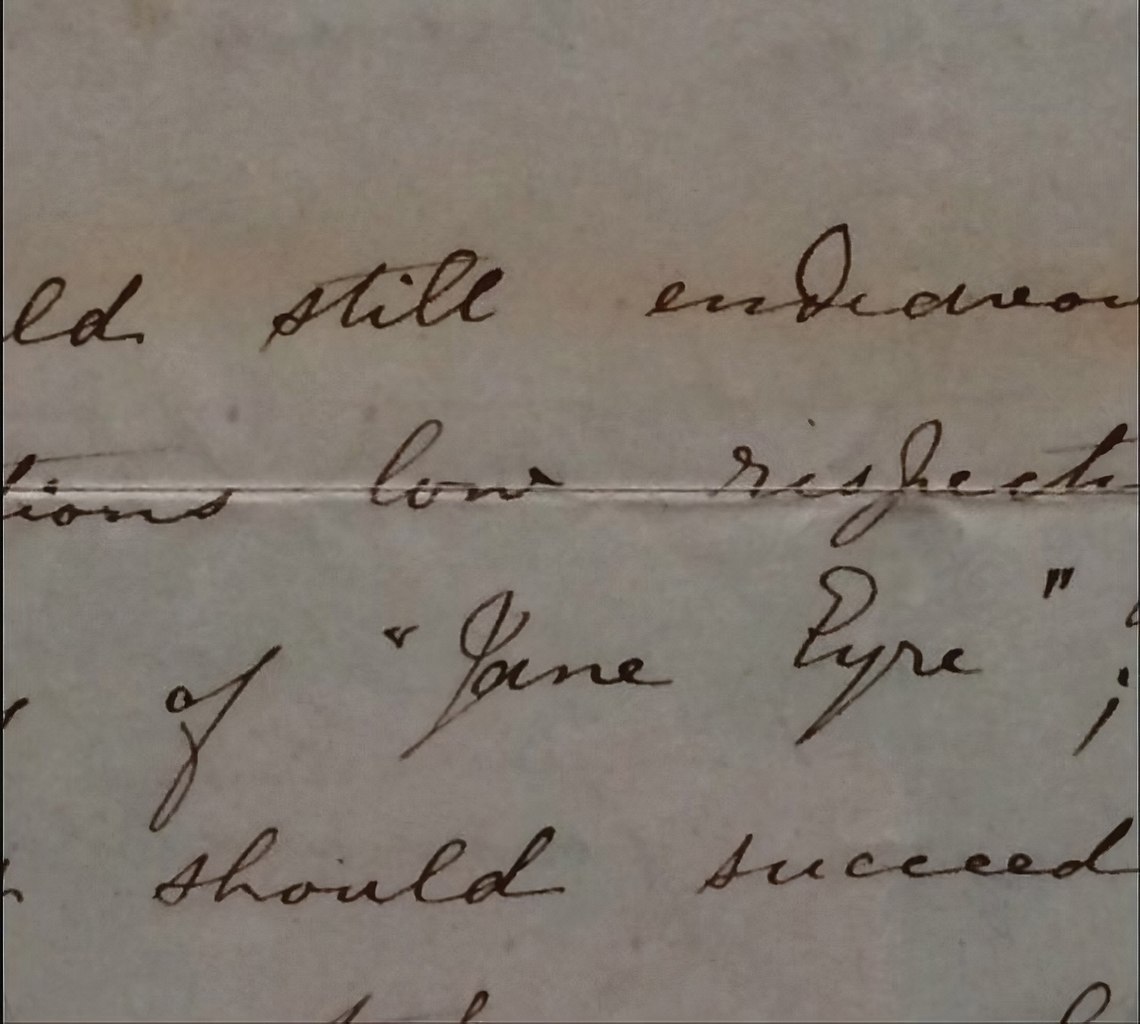 ld still endeavou
tions low respect
of "Jane Eyre";
should succeed